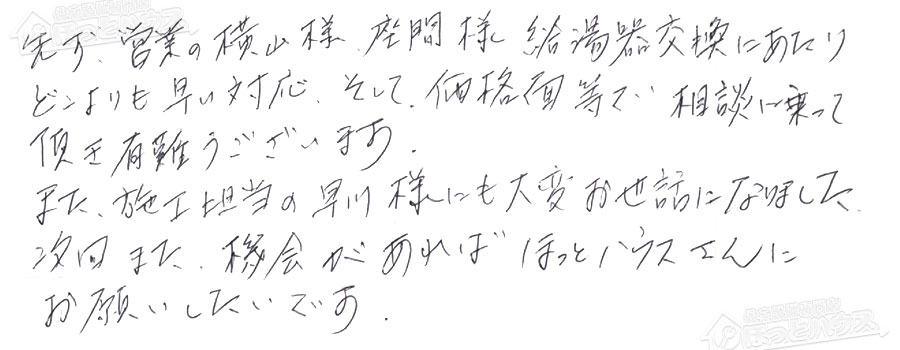 先ず、営業の横山様、座間様 給湯器交換にあたり
どこよりも早い対応、そして、価格面等で 相談に乗って
頂き有難うございます.
また、施工担当の早川様にも大変お世話になりました.
次回また、機会があれば ほっとハウスさんに
お願いしたいです.
ほっとハウス
ほっとハウス